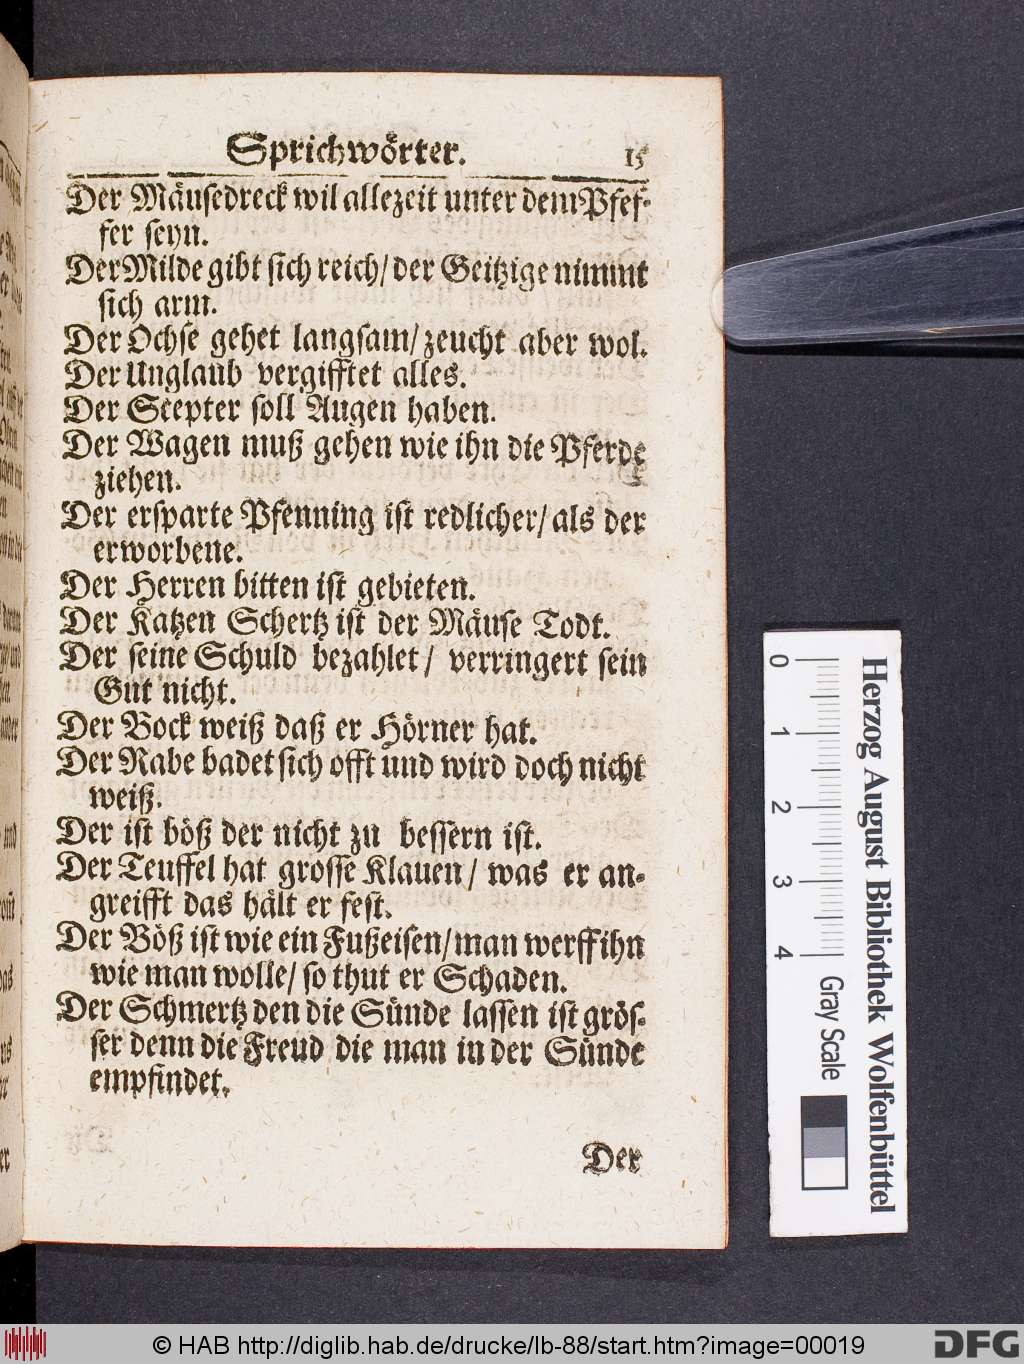 Sprichwörter. 15
Der Mäusedreck wil allezeit unter dem Pfef-
fer seyn.
Der Milde gibt sich reich/ der Geitzige nimmt
sich arm.
Der Ochse gehet langsam/ zeucht aber wol.
Der Unglaub vergifftet alles.
Der Scepter soll Augen haben.
Der Wagen muß gehen wie ihn die Pferde
ziehen.
Der ersparte Pfenning ist redlicher/ als der
erworbene.
Der Herren bitten ist gebieten.
Der Katzen Schertz ist der Mäuse Todt.
Der seine Schuld bezahlet/ verringert sein
Gut nicht.
Der Bock weiß daß er Hörner hat.
Der Rabe badet sich offt und wird doch nicht
weiß.
Der ist böß der nicht zu bessern ist.
Der Teuffel hat grosse Klauen/ was er an-
greifft das hält er fest.
Der Böß ist wie ein Fußeisen/ man werff ihn
wie man wolle/ so thut er Schaden.
Der Schmertz den die Sünde lassen ist grös-
ser denn die Freud die man in der Sünde
empfindet.
Der
Herzog August Bibliothek Wolfenbüttel
0 1 2 3 4 Gray Scale
© HAB http://diglib.hab.de/drucke/lb-88/start.htm?image=00019
DFG